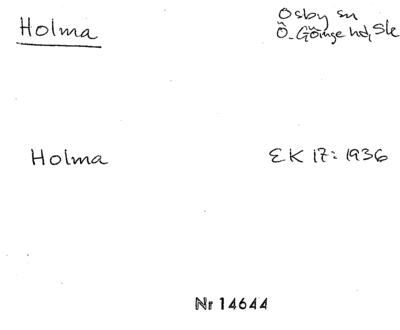 Holma
Osby sn
Ö. Göinge hd, Sk
Holma
EK 17: 1936
Nr 14644